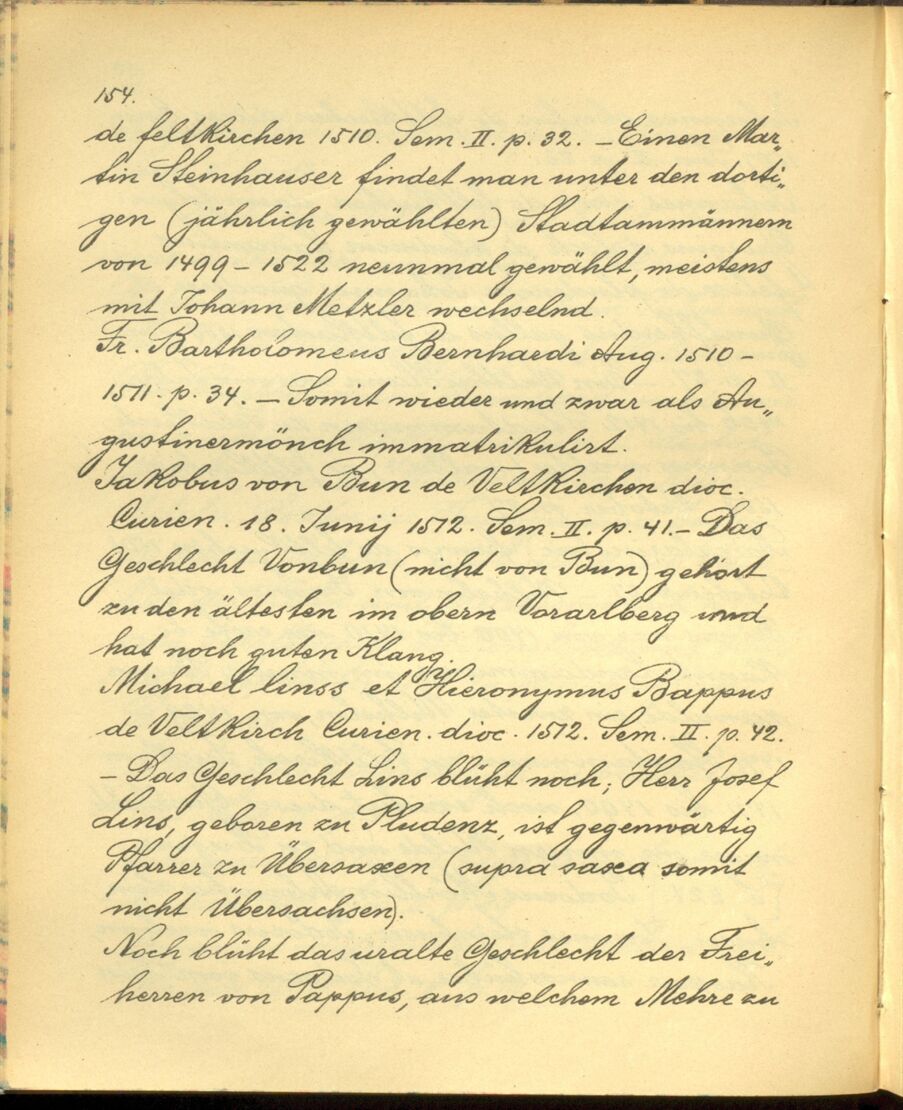 154.
de feltkirchen 1510. Sem. II. p. 32. – Einen Mar„
tin Steinhauser findet man unter den dorti„
gen (jährlich gewählten) Stadtammännern
von 1499 – 1522 neunmal gewählt, meistens
mit Johann Metzler wechselnd.
Fr. Bartholomeus Bernhardi Aug. 1510 –
1511. p. 34. – Somit wieder und zwar als Au„
gustinermönch immatrikulirt.
Jakobus von Bun de Veltkirchen dioc.
Curien. 18. Junij 1512. Sem. II. p. 41. – Das
Geschlecht Vonbun (nicht von Bun) gehört
zu den ältesten im obern Vorarlberg und
hat noch guten Klang.
Michael linss et Hieronymus Bappus
de Veltkirch Curien. dioc. 1512. Sem. II. p. 42.
– Das Geschlecht Lins blüht noch; Herr Josef
Lins, geboren zu Pludenz, ist gegenwärtig
Pfarrer zu Übersaxen (supra saxa somit
nicht Übersachsen).
Noch blüht das uralte Geschlecht der Frei„
herren von Pappus, aus welchem Mehre zu